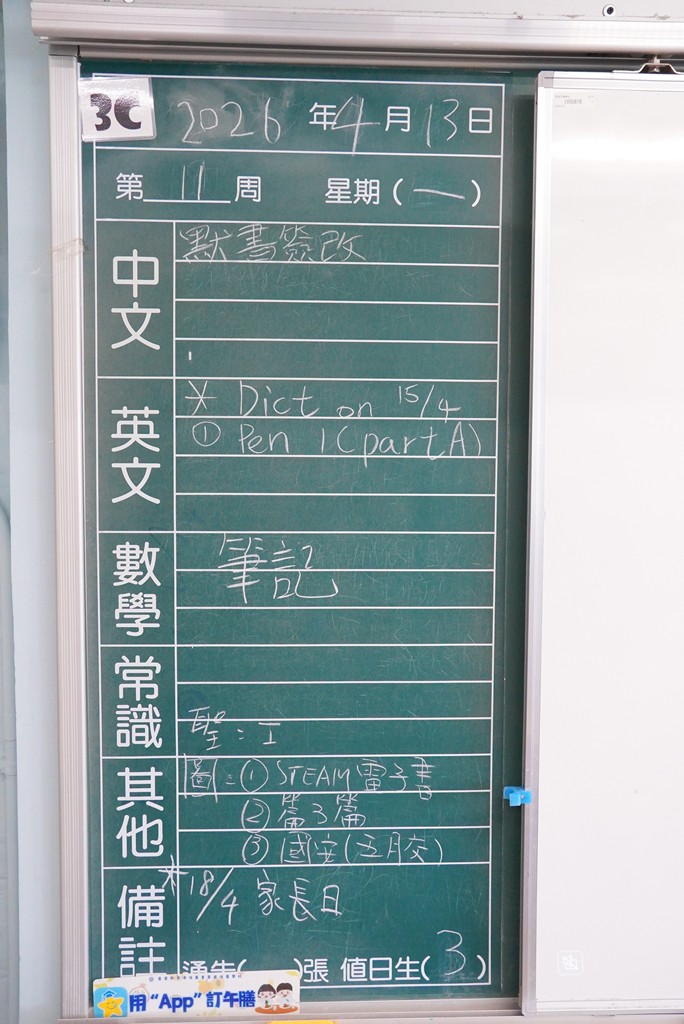 3C 2026年4月13日
第 11 周 星期(一)
中文
默書簽改
英文
* Dict on 15/4
① Pen 1 (part A)
數學
筆記
常識
聖：工
其他
圖：① STEAM電子書
② 篇3篇
③ 國安(五月交)
備註
* 18/4 家長日
通告( )張 值日生(3)
用“App”訂午膳